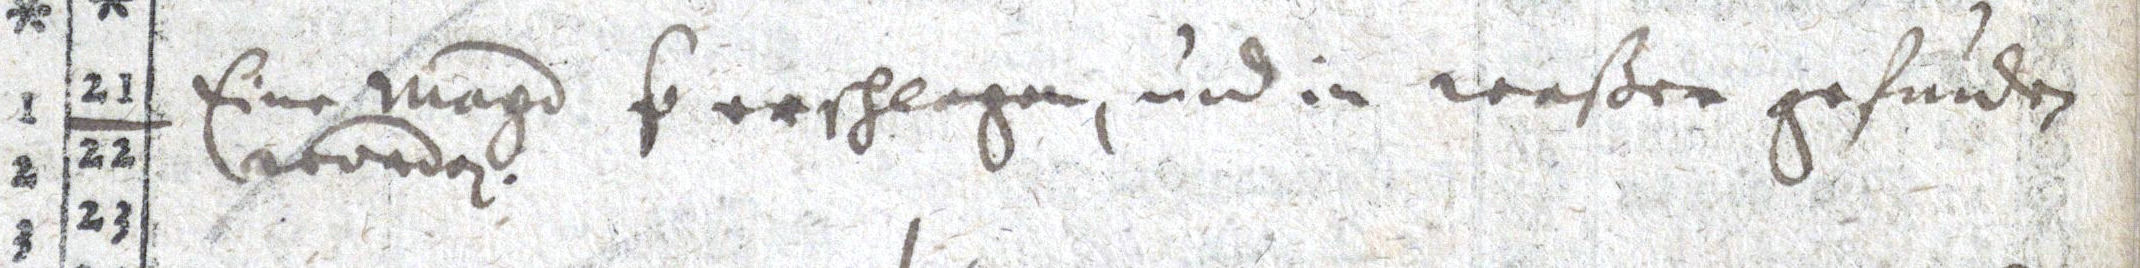 * *
1 21 Eine Magd erschlagen, und in waßer gefunden
2 22 worden.
3 23